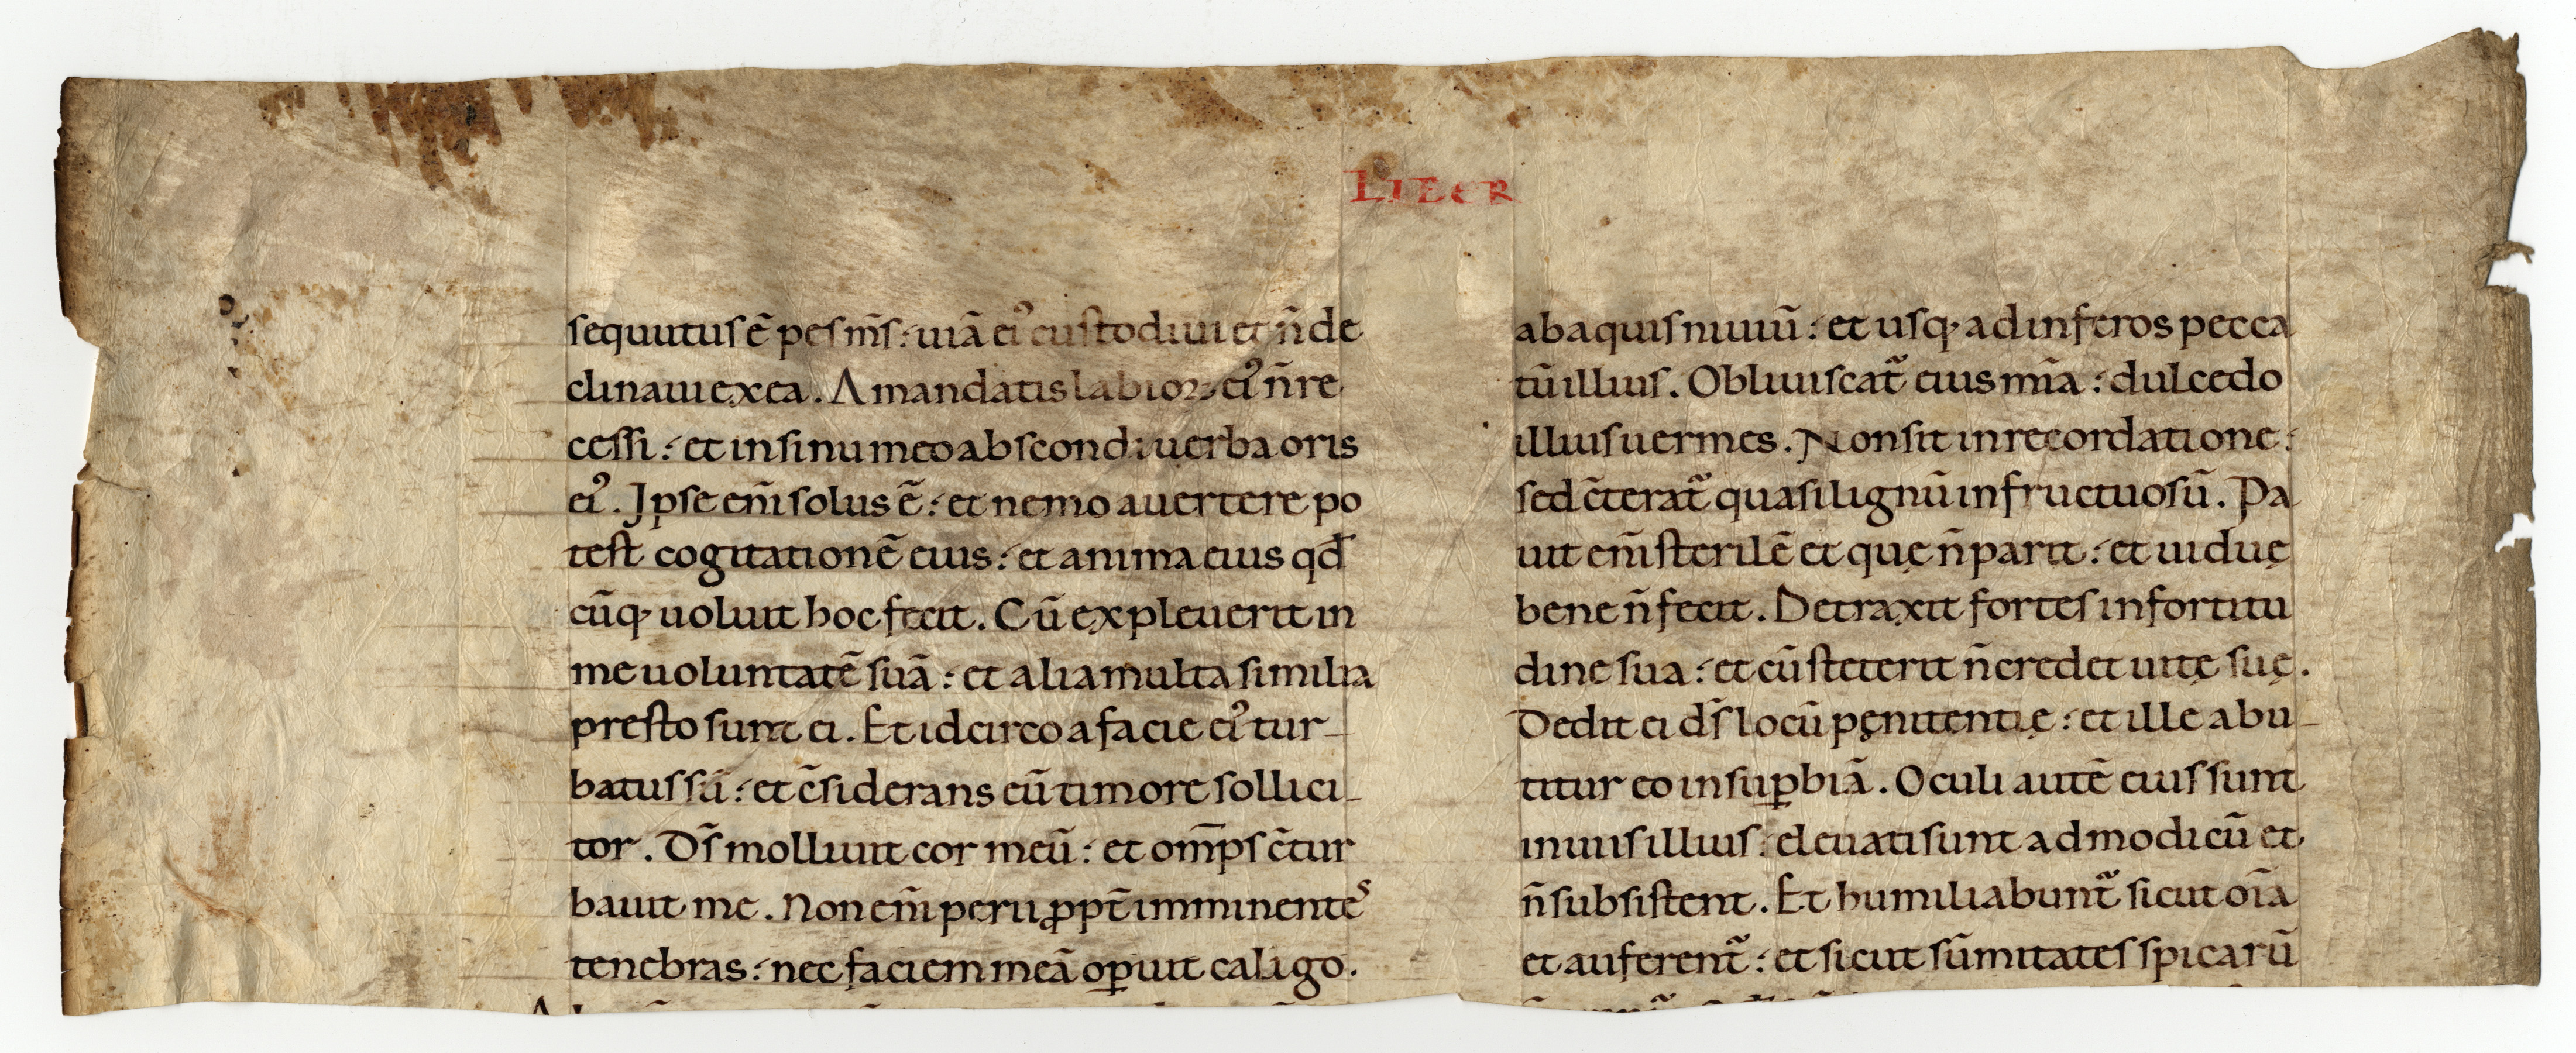 LIBER
sequutus ē pes m̄s : uiā ei᾽ custodiui et n̄ de
clinaui ex ea . A mandatis labioꝝ ei᾽ n̄ re
cessi : et in sinu meo abscondi uerba oris
ei᾽ . Ipse em̄ solus ē : et nemo auertere po
test cogitationē eius : et anima eius qd̄
cūq· uoluit hoc fecit . Cū expleuerit in
me uoluntatē suā : et alia multa similia
presto sunt ei . Et idcirco a facie ei᾽ tur-
batus sū : et c̄siderans eū timore sollici-
tor . Ds̄ molliuit cor meū : et om̄ps c̄tur
bauit me . Non em̄ perii ꝓpt̄ imminentes
tenebras : nec faciem meā oꝑuit caligo .
ab aquis niuiū : et usq· ad inferos pecca
tū illius . Obliuiscat᷑ eius mīa : dulcedo
illius uermes . Non sit in recordatione :
sed c̄terat᷑ quasi lignū infructuosū . Pa
uit em̄ sterilē et quę n̄ parit : et uiduę
bene n̄ fecit . Detraxit fortes in fortitu
dine sua : et cū steterit n̄ credet uitę suę .
Dedit ei ds̄ locū pęnitentię : et ille abu-
titur eo in suꝑbiā . Oculi autē eius sunt
in uiis illius : eleuati sunt ad modicū et
n̄ subsistent . Et humiliabunt᷑ sicut oīa
et auferent᷑ : et sicut sūmitates spicarū